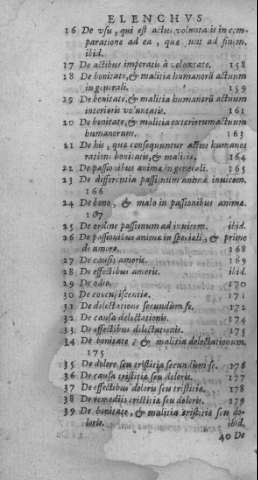 ELENCHVS
16 De vsu, qui est actus voluntatis in com-
paratione ad ea, quæ sunt ad finem.
ibid.
17 De actibus imperatis à voluntate. 158
18 De bonitate, & malitia humanorũ actuum
in generali. 159
19 De bonitate, & malitia humanorũ actuum
interioris voluntatis. 161
20 De bonitate, & malitia exteriorum actuum
humanorum. 163
21 De his, quæ consequuntur actus humanos
ratione bonitatis, & malitiæ. 164
22 De passionibus animæ in generali. 165
23 De differentia passionum animæ invicem.
166
24 De bono, & malo in passionibus animæ.
167
25 De ordine passionum ad invicem. ibid.
26 De passionibus animæ in speciali, & primo
de amore. 168
27 De causis amoris. 169
28 De effectibus amoris. ibid.
29 De odio. 170
30 De concupiscentia. 171
31 De delectatione secundum se. 172
32 De causa delectationis. 174
33 De effectibus delectationis. 175
34 De bonitate, & malitia delectationum.
175
35 De dolore, seu tristitia secundum se. 176
36 De causa tristitiæ seu doloris. 177
37 De effectibus doloris seu tristitiæ. 178
38 De remedijs tristitiæ seu doloris. 179
39 De bonitate, & malitia tristitiæ seu do-
loris. ibid.
40 De